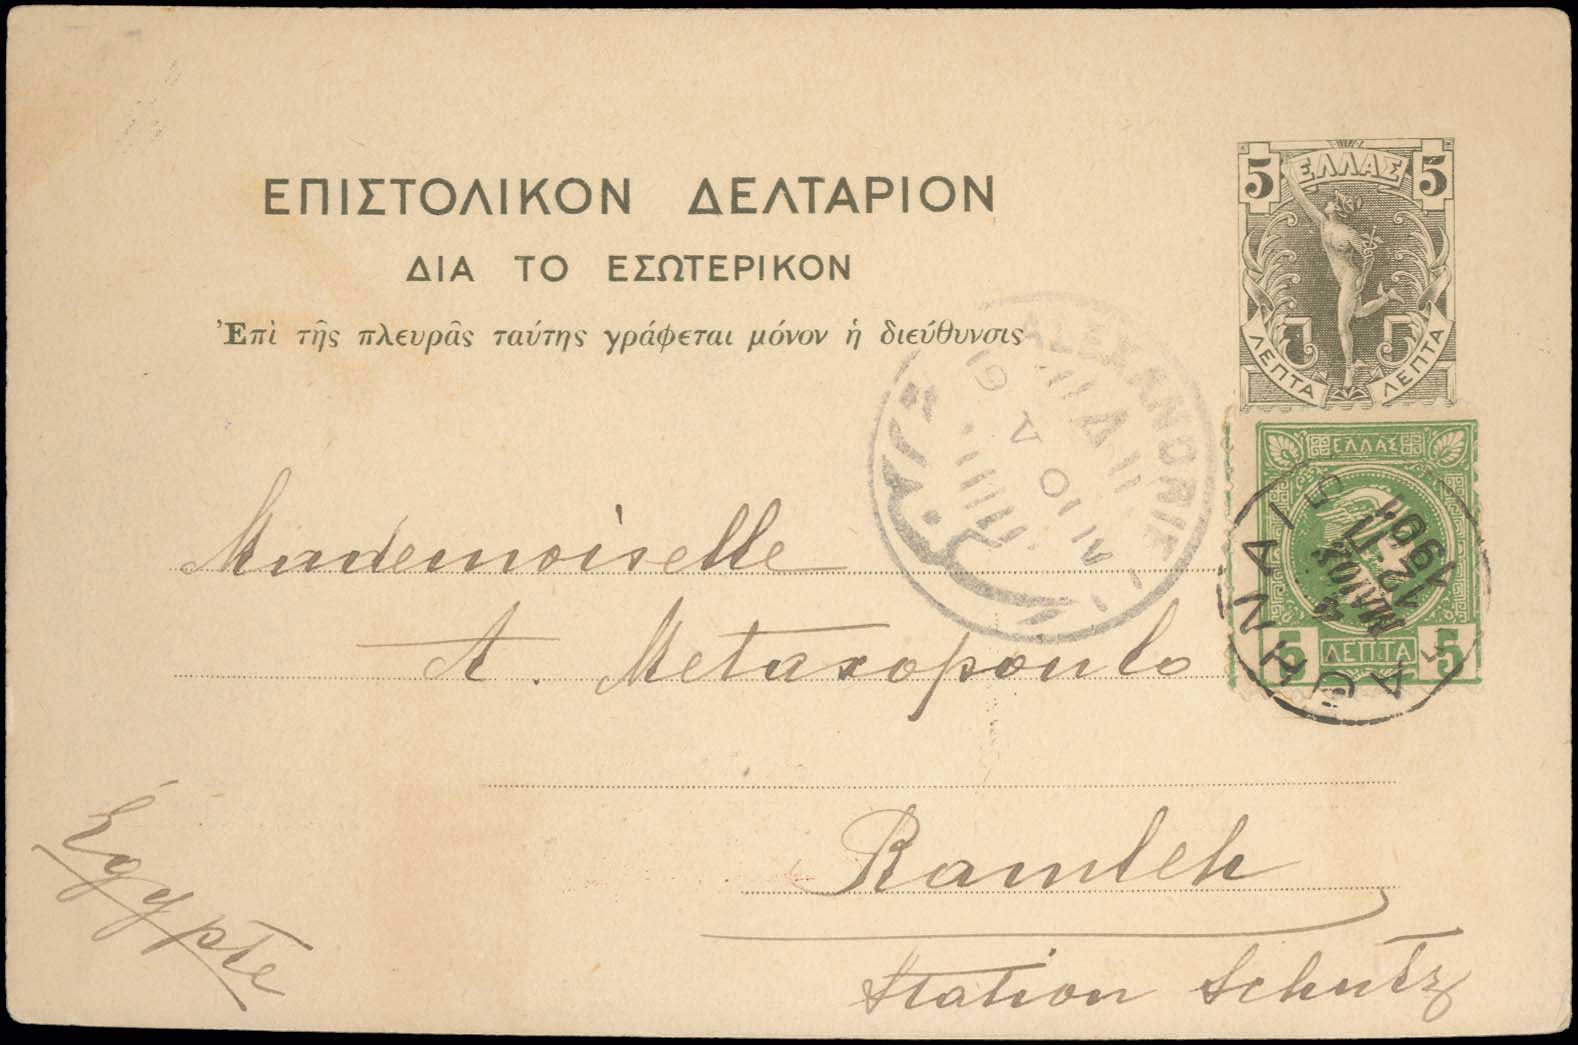 5 ΕΛΛΑΣ 5
ΕΠΙΣΤΟΛΙΚΟΝ ΔΕΛΤΑΡΙΟΝ
ΔΙΑ ΤΟ ΕΣΩΤΕΡΙΚΟΝ
Ἐπὶ τῆς πλευρᾶς ταύτης γράφεται μόνον ἡ διεύθυνσις
ΛΕΠΤΑ ΛΕΠΤΑ
ALEXANDRIE
19 V 01
ΕΛΛΑΣ
5 ΛΕΠΤΑ 5
ΑΘΗΝΑΙ 5
4 ΜΑΙΟΥ
12-11
1901
Mademoiselle
A. Metaxopoulo
Ramleh
Station Schutz
Égypte